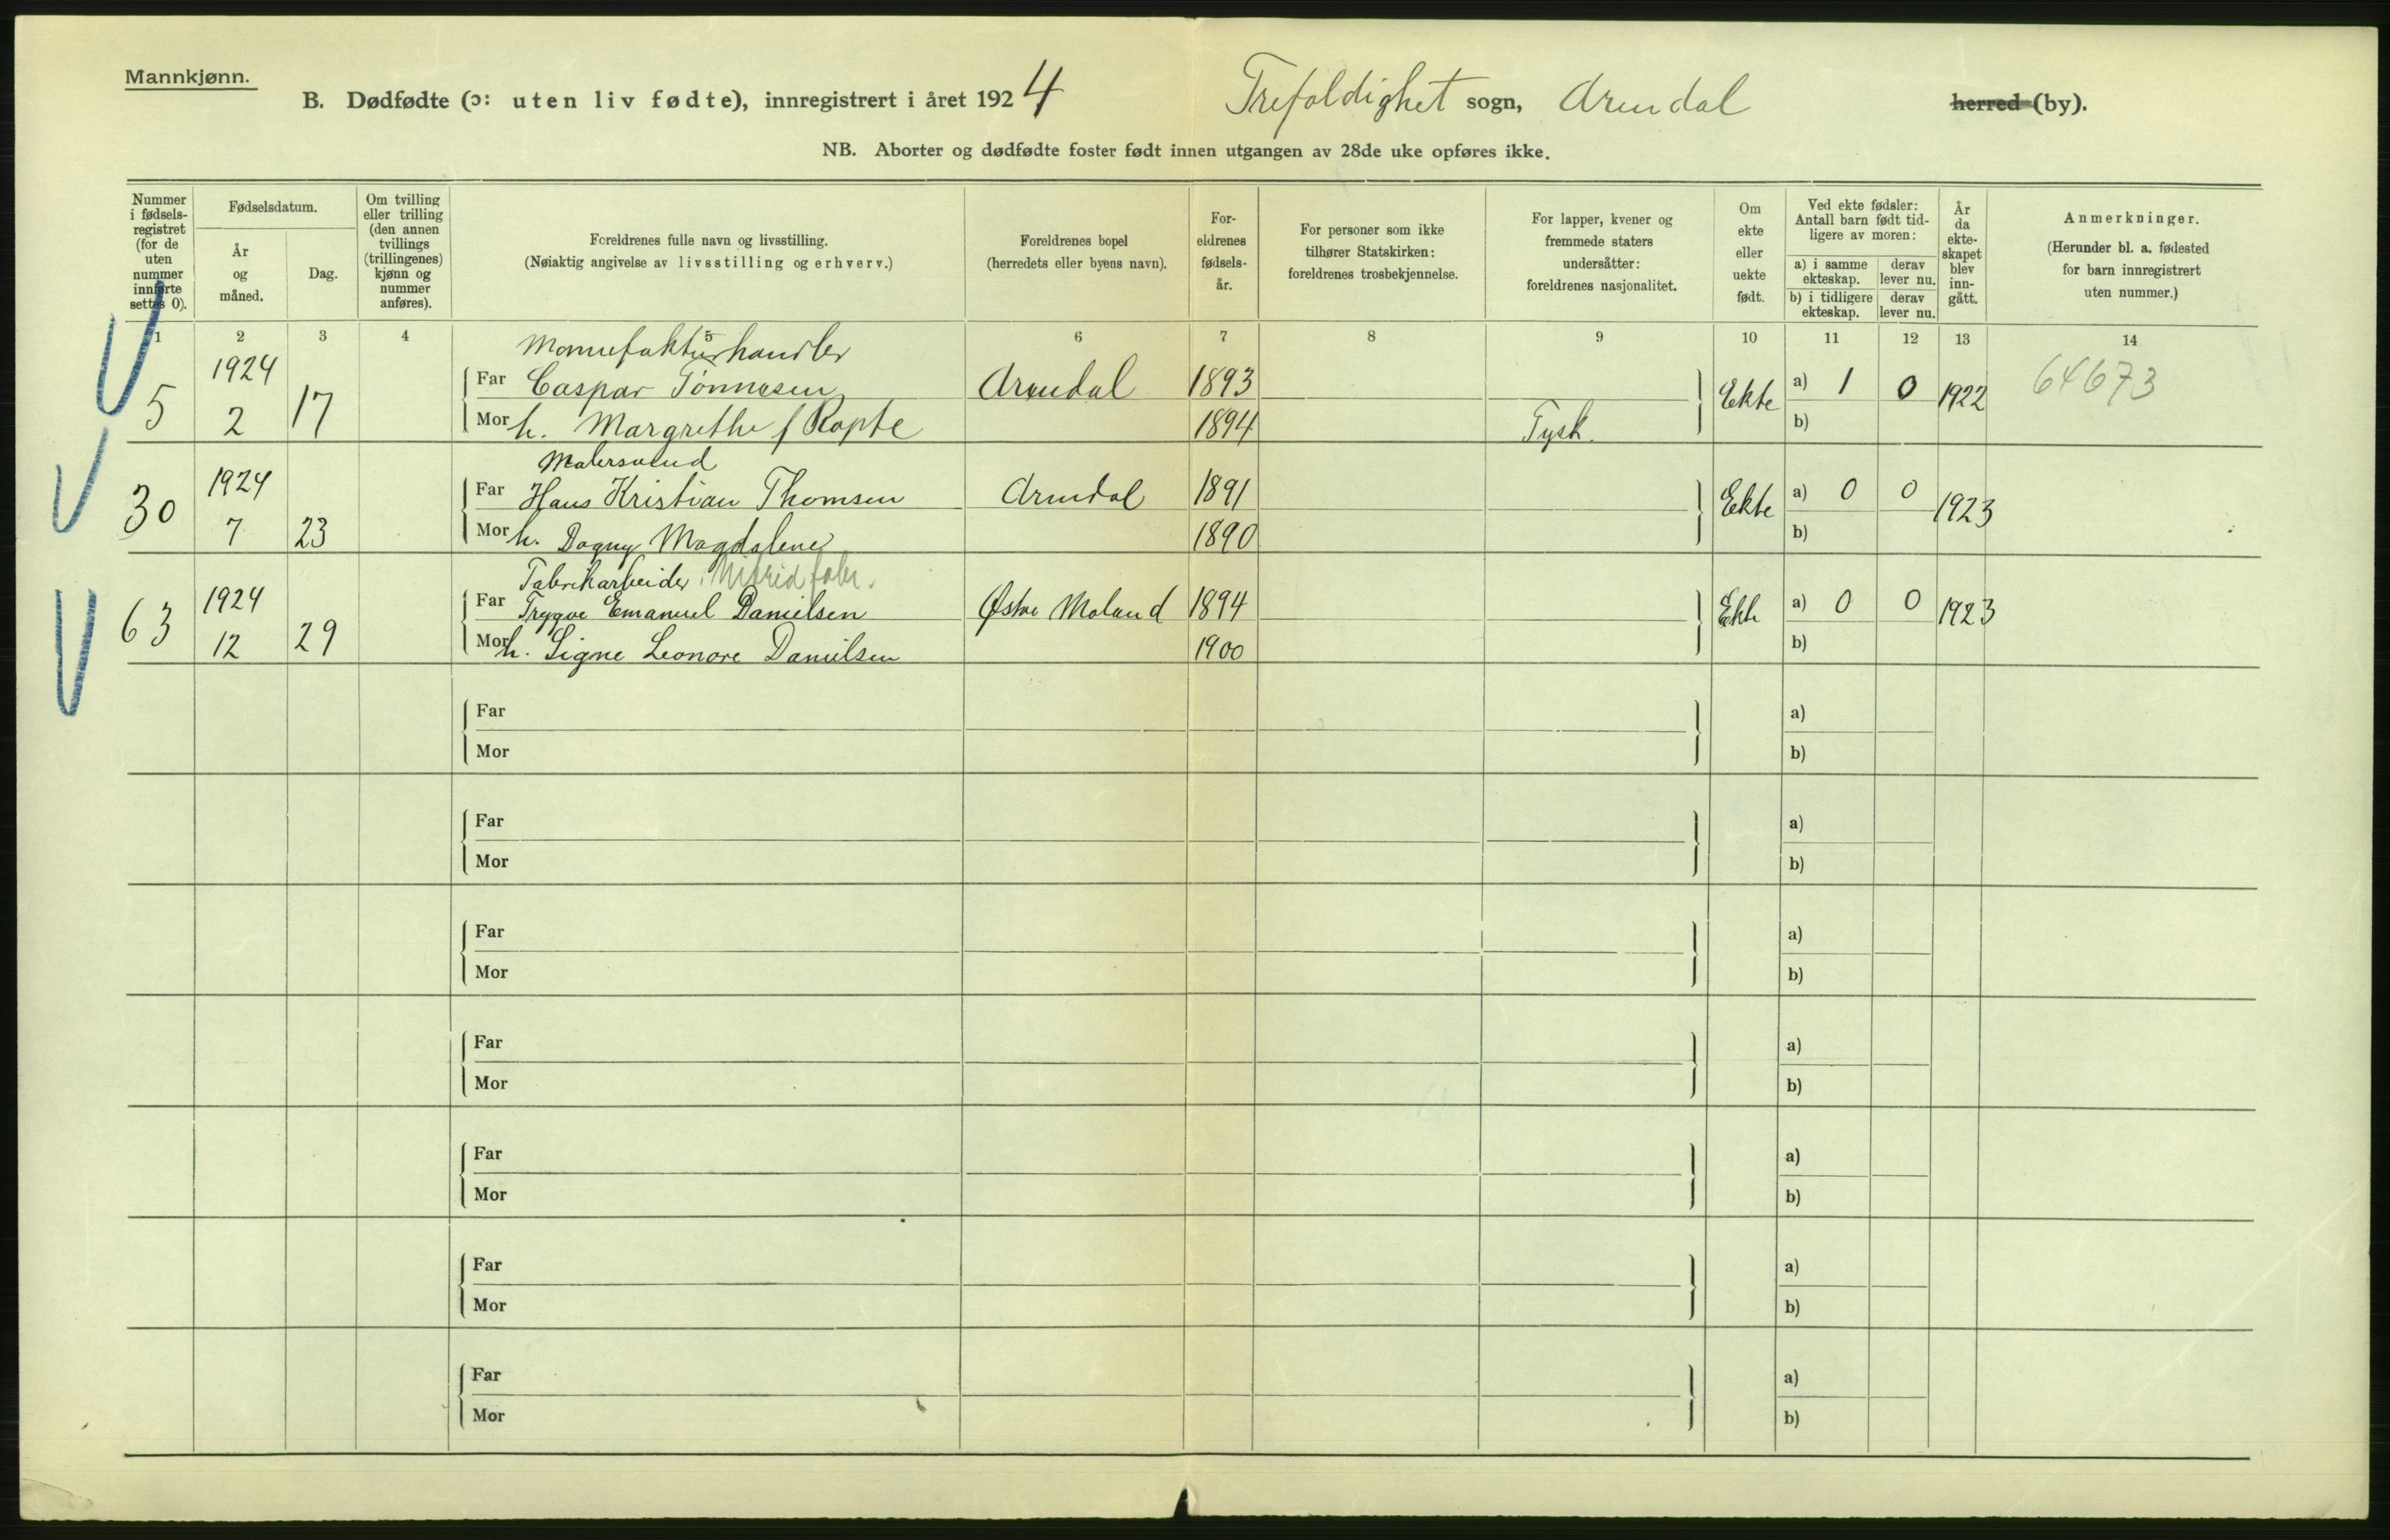 Mannkjønn.
B. Dødfødte (ɔ: uten liv fødte), innregistrert i året 1924 Trefoldighet sogn, Arendal herred (by).
NB. Aborter og dødfødte foster født innen utgangen av 28de uke opføres ikke.
Nummer i fødsels- registret (for de uten nummer innførte settes 0).
Fødselsdatum.
År og måned.
Dag.
Om tvilling eller trilling (den annen tvillings (trillingenes) kjønn og nummer anføres).
Foreldrenes fulle navn og livsstilling.
(Nøiaktig angivelse av livsstilling og erhverv.)
Foreldrenes bopel
(herredets eller byens navn).
For- eldrenes fødsels- år.
For personer som ikke tilhører Statskirken: foreldrenes trosbekjennelse.
For lapper, kvener og fremmede staters undersåtter: foreldrenes nasjonalitet.
Om ekte eller uekte født.
Ved ekte fødsler: Antall barn født tid- ligere av moren:
a) i samme ekteskap. derav lever nu.
b) i tidligere ekteskap. derav lever nu.
År da ekte- skapet blev inn- gått.
Anmerkninger.
(Herunder bl. a. fødested for barn innregistrert uten nummer.)
1 2 3 4 5 6 7 8 9 10 11 12 13 14
Mannefakturhandler
5 1924 2 17 Far Caspar Tønnesen Arendal 1893 Ekte a) 1 0 1922 64673
Mor h. Margrethe f Ropte 1894 Tysk. b)
Malersvend
30 1924 7 23 Far Hans Kristian Thomsen Arendal 1891 Ekte a) 0 0 1923
Mor h. Dagny Magdalene 1890 b)
Fabrikarbeider, Nitridfabr.
63 1924 12 29 Far Trygve Emanuel Danielsen Østre Moland 1894 Ekte a) 0 0 1923
Mor h. Signe Leonore Danielsen 1900 b)
Far a)
Mor b)
Far a)
Mor b)
Far a)
Mor b)
Far a)
Mor b)
Far a)
Mor b)
Far a)
Mor b)
Far a)
Mor b)